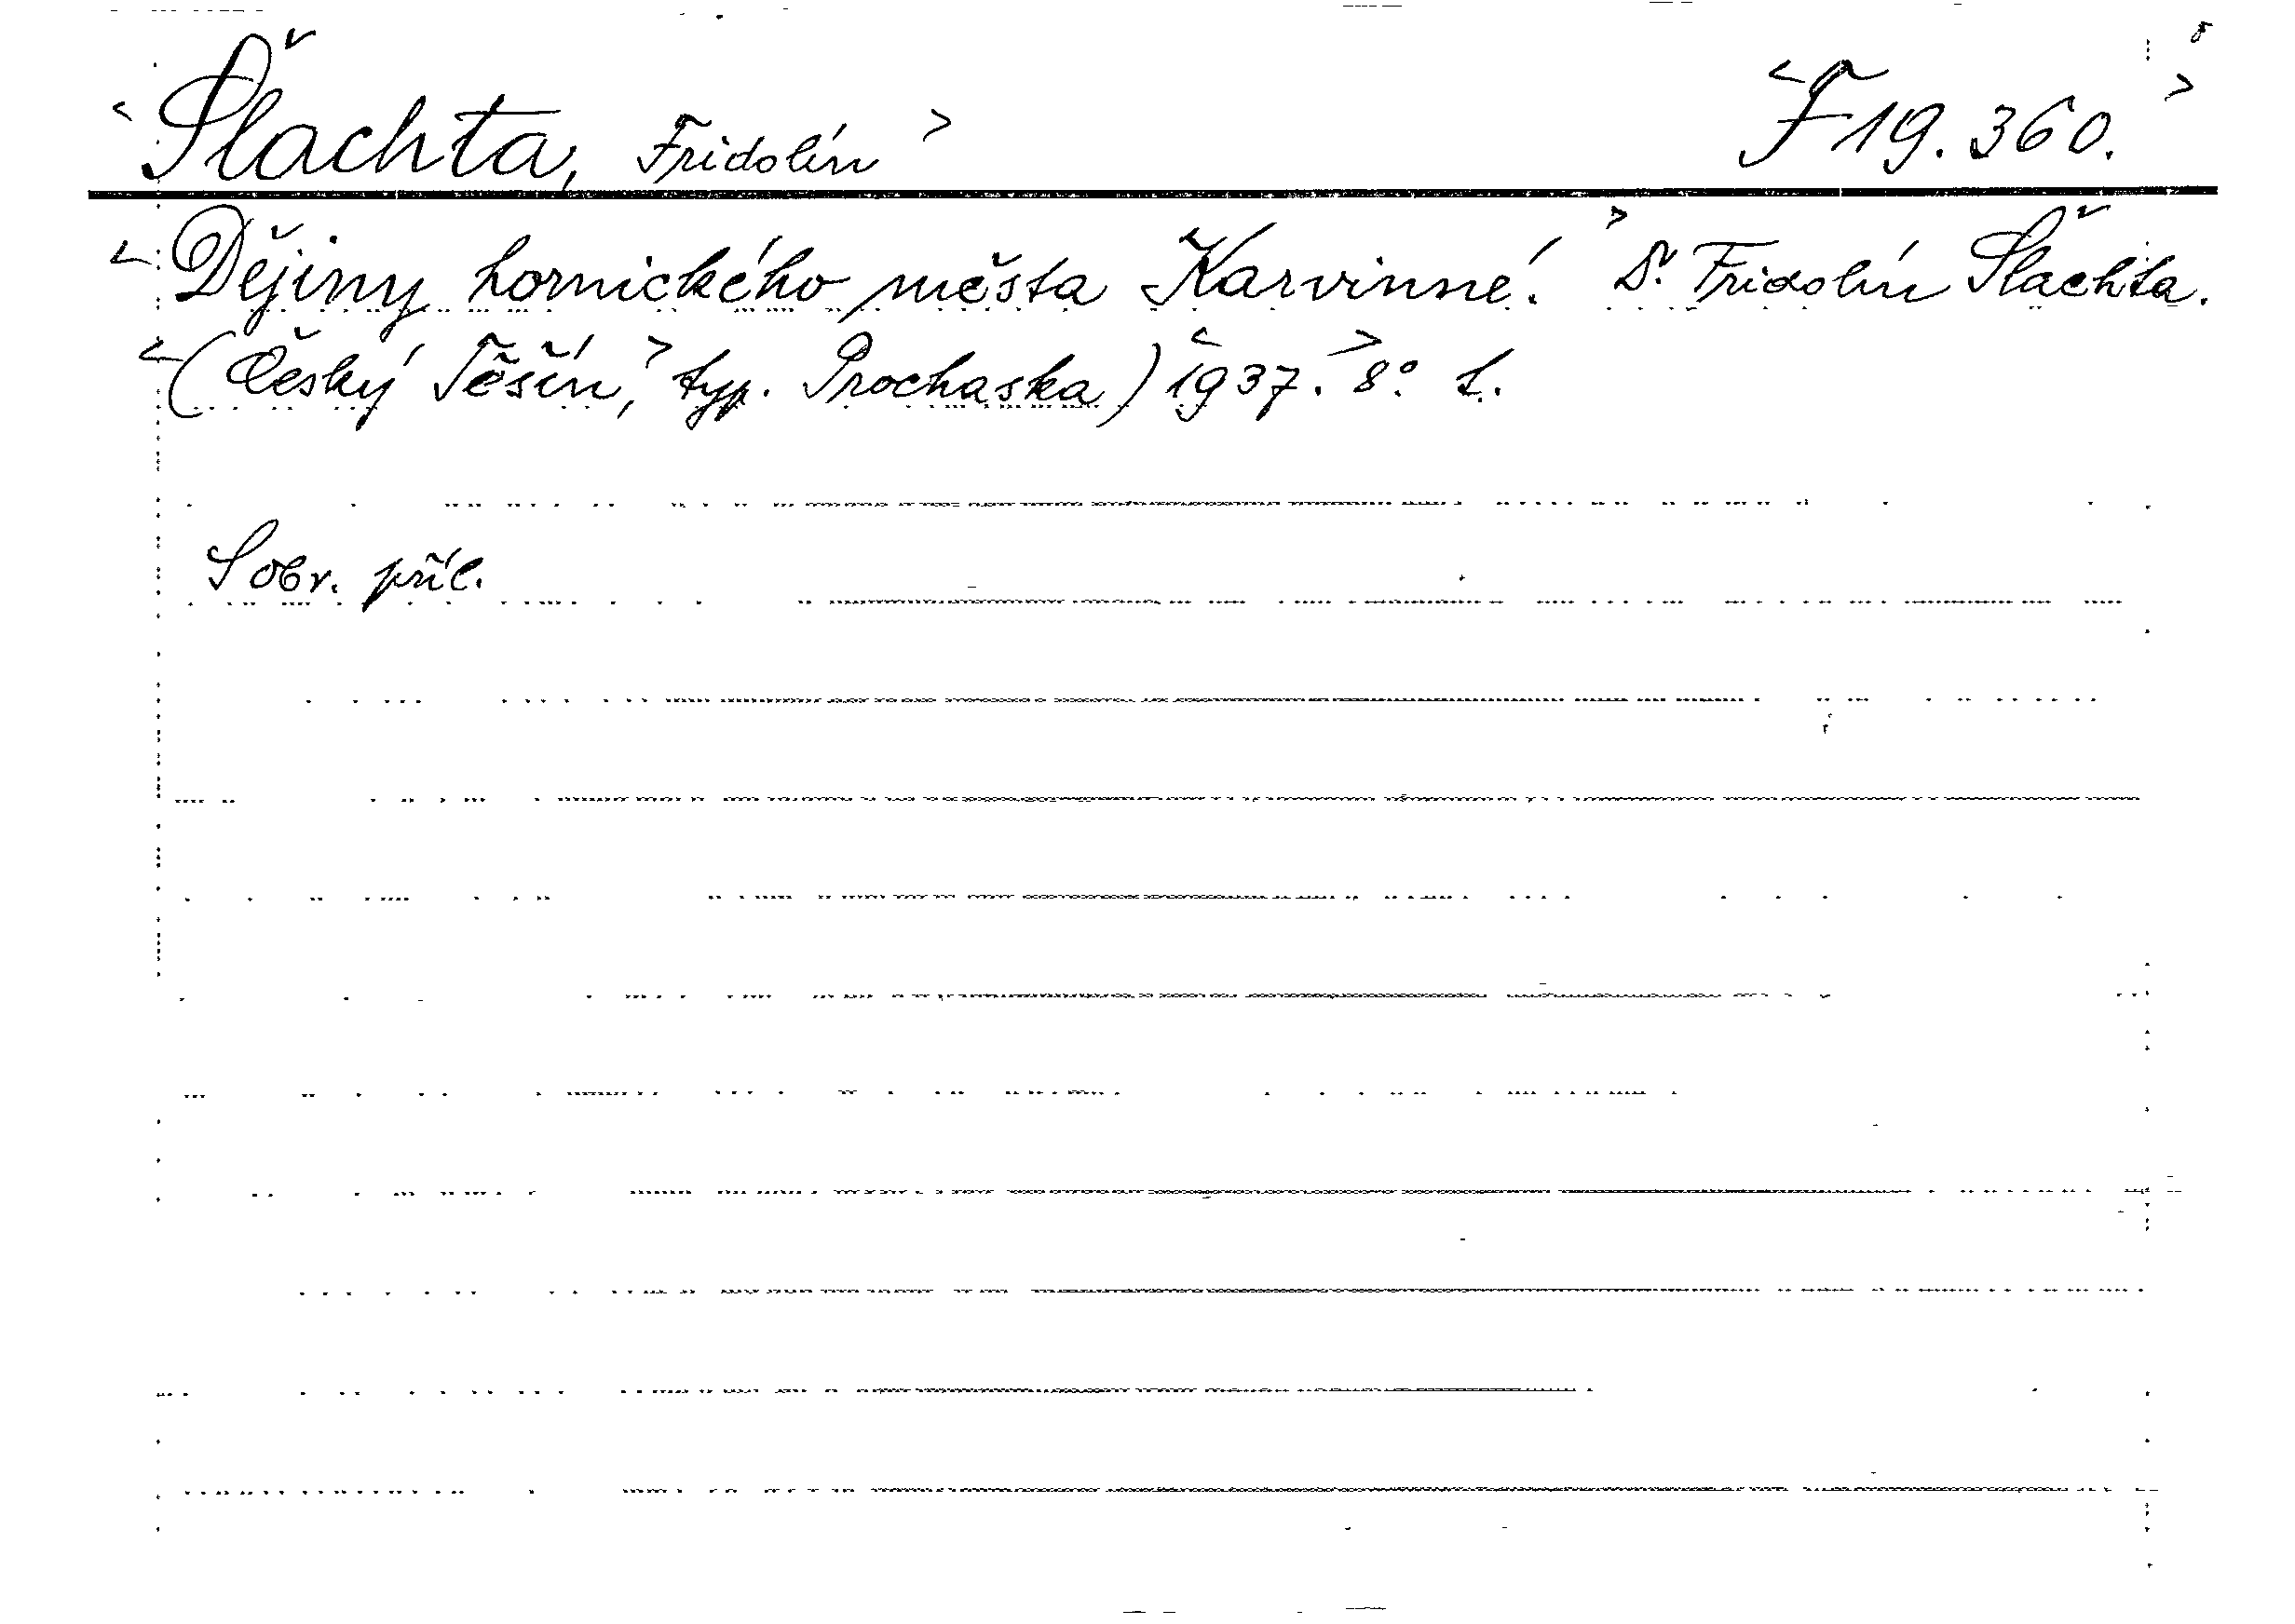 <Šlachta, Fridolín> <F 19.360.>
<Dějiny hornického města Karvinné.> Dr. Fridolín Šlachta.
<(Český Těšín,> typ. Prochaska) <1937.> 8° L.
S obr. příl.